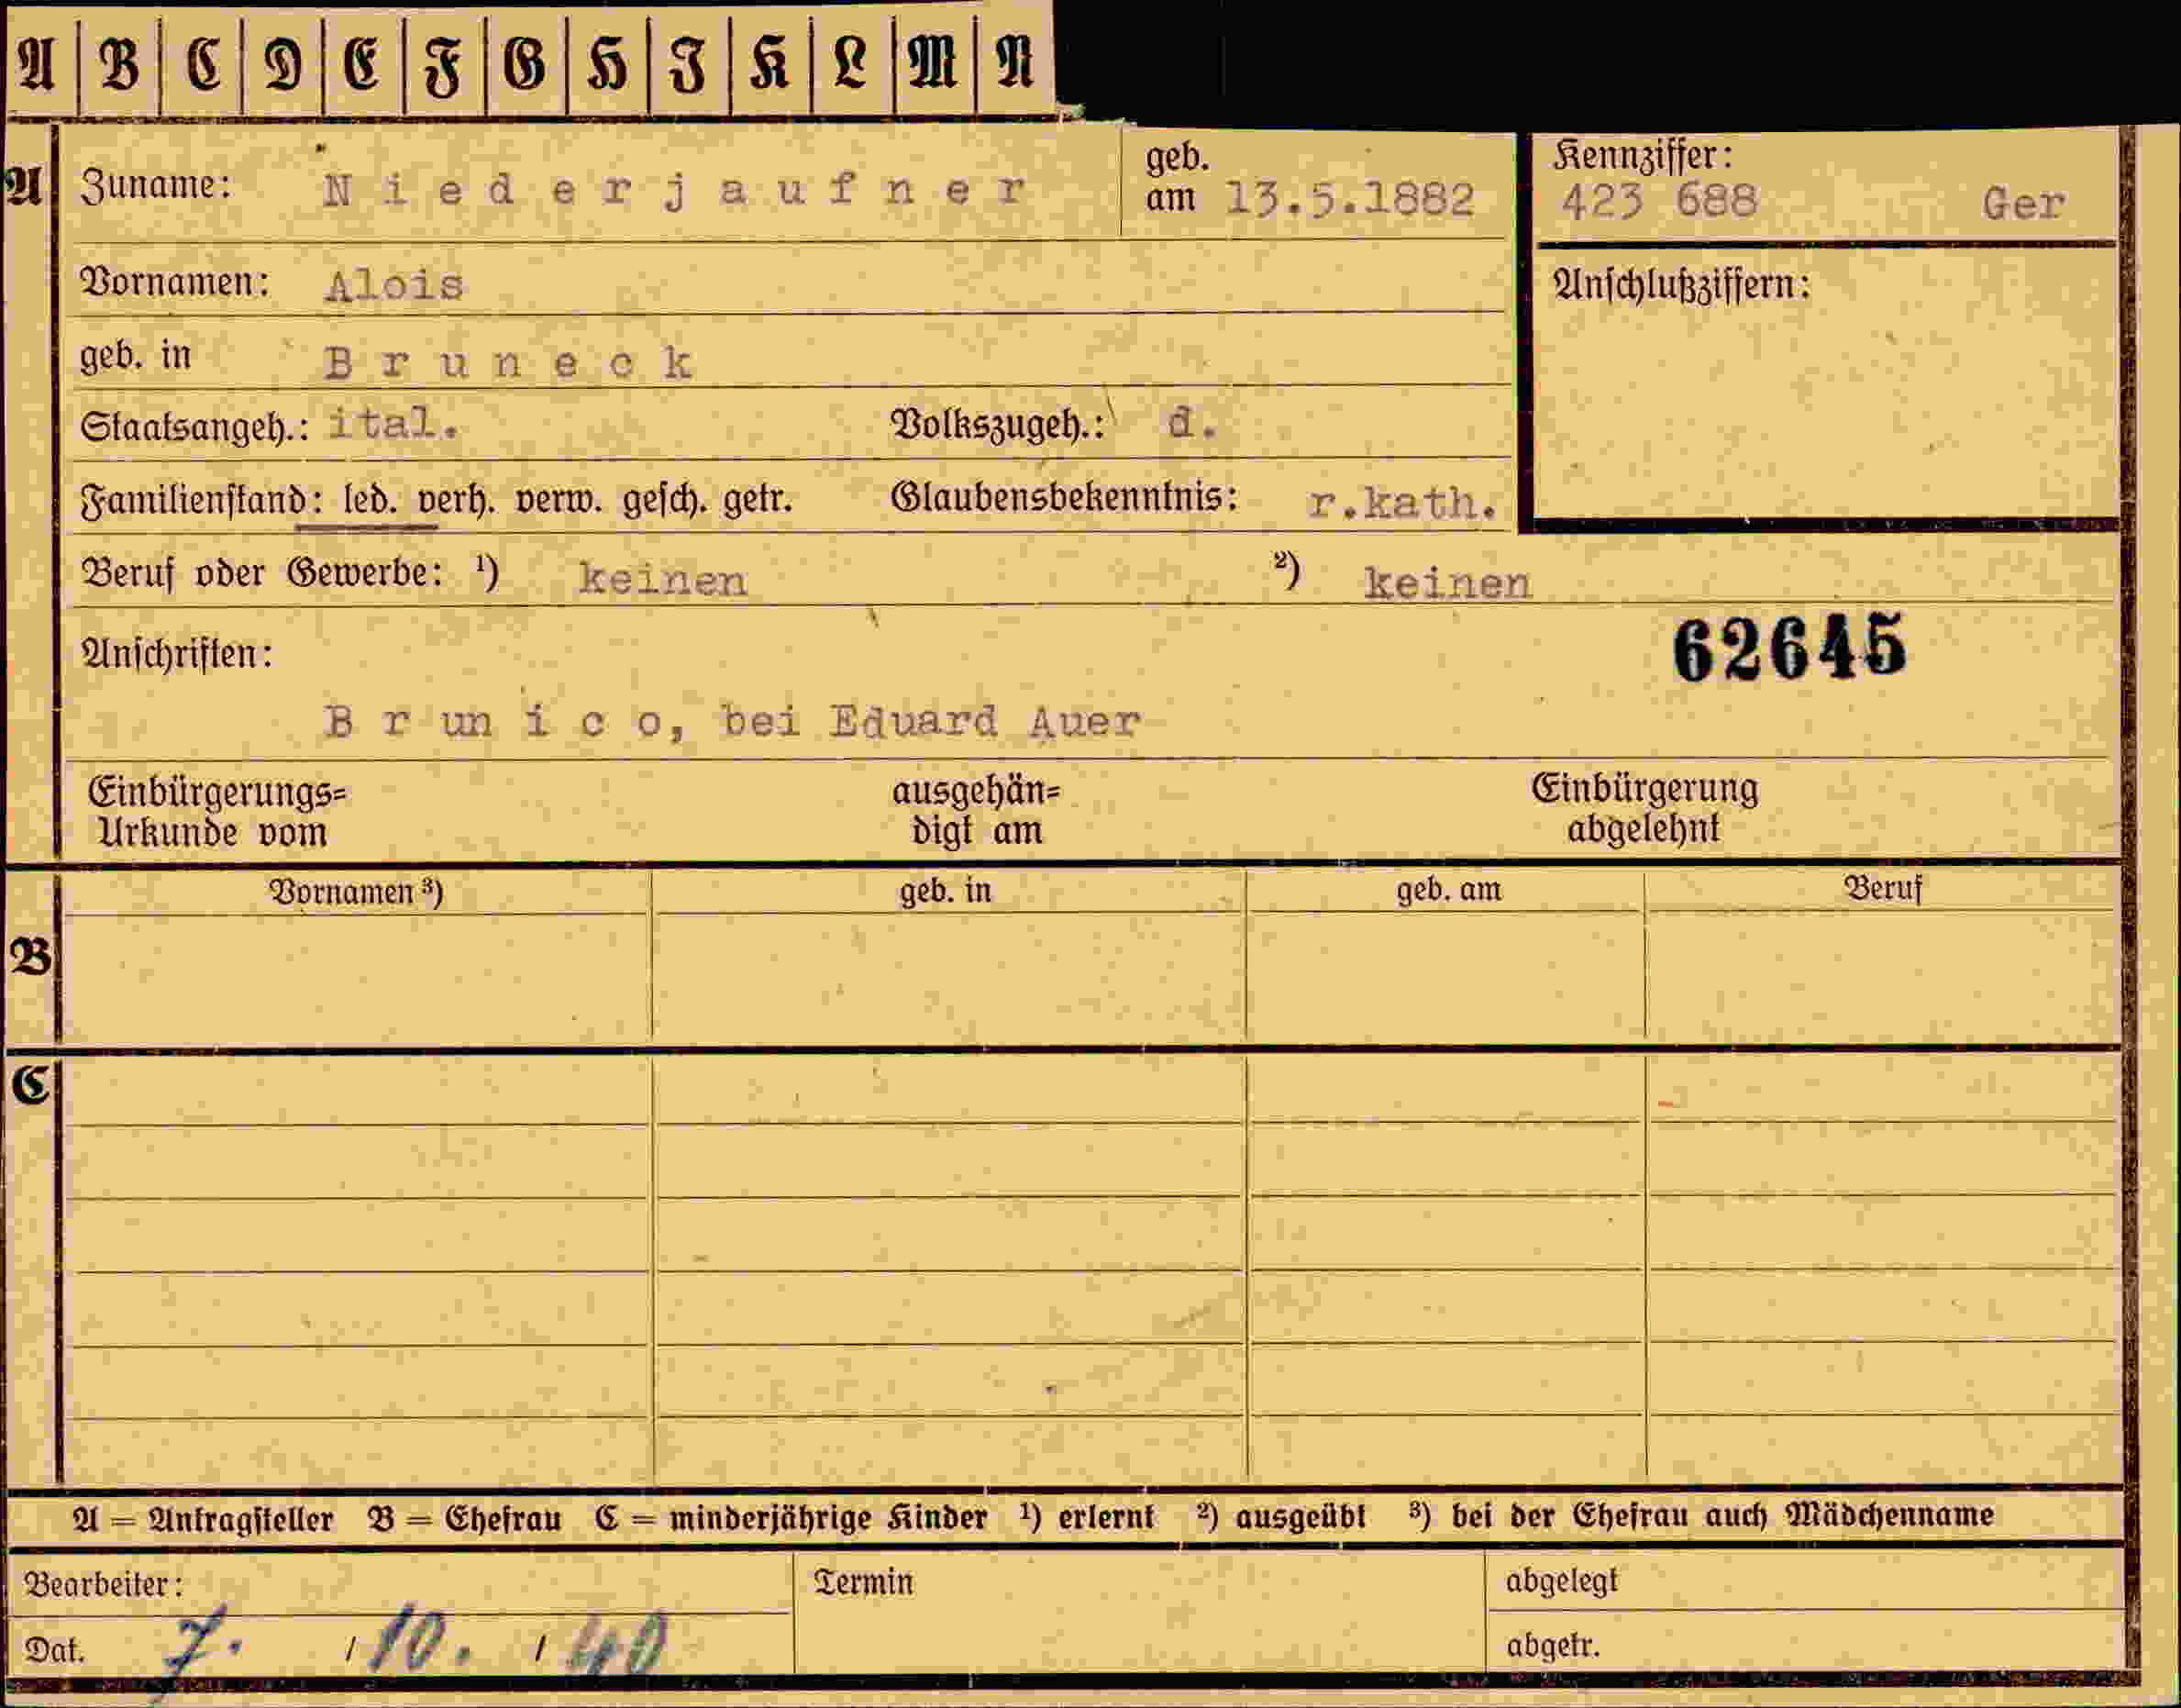 A B C D E F G H I K L M N
A Zuname: Niederjaufner geb. am 13.5.1882 Kennziffer: 423 688 Ger
Vornamen: Alois Anschlußziffern:
geb. in Bruneck
Staatsangeh.: ital. Volkszugeh.: d.
Familienstand: led. verh. verw. gesch. getr. Glaubensbekenntnis: r.kath.
Beruf oder Gewerbe: ¹) keinen ²) keinen
Anschriften: 62645
Brunico, bei Eduard Auer
Einbürgerungs= ausgehän= Einbürgerung
Urkunde vom digt am abgelehnt
Vornamen ³) geb. in geb. am Beruf
B
C
A = Antragsteller B = Ehefrau C = minderjährige Kinder ¹) erlernt ²) ausgeübt ³) bei der Ehefrau auch Mädchenname
Bearbeiter: Termin abgelegt
Dat. 7. / 10. / 40 abgetr.